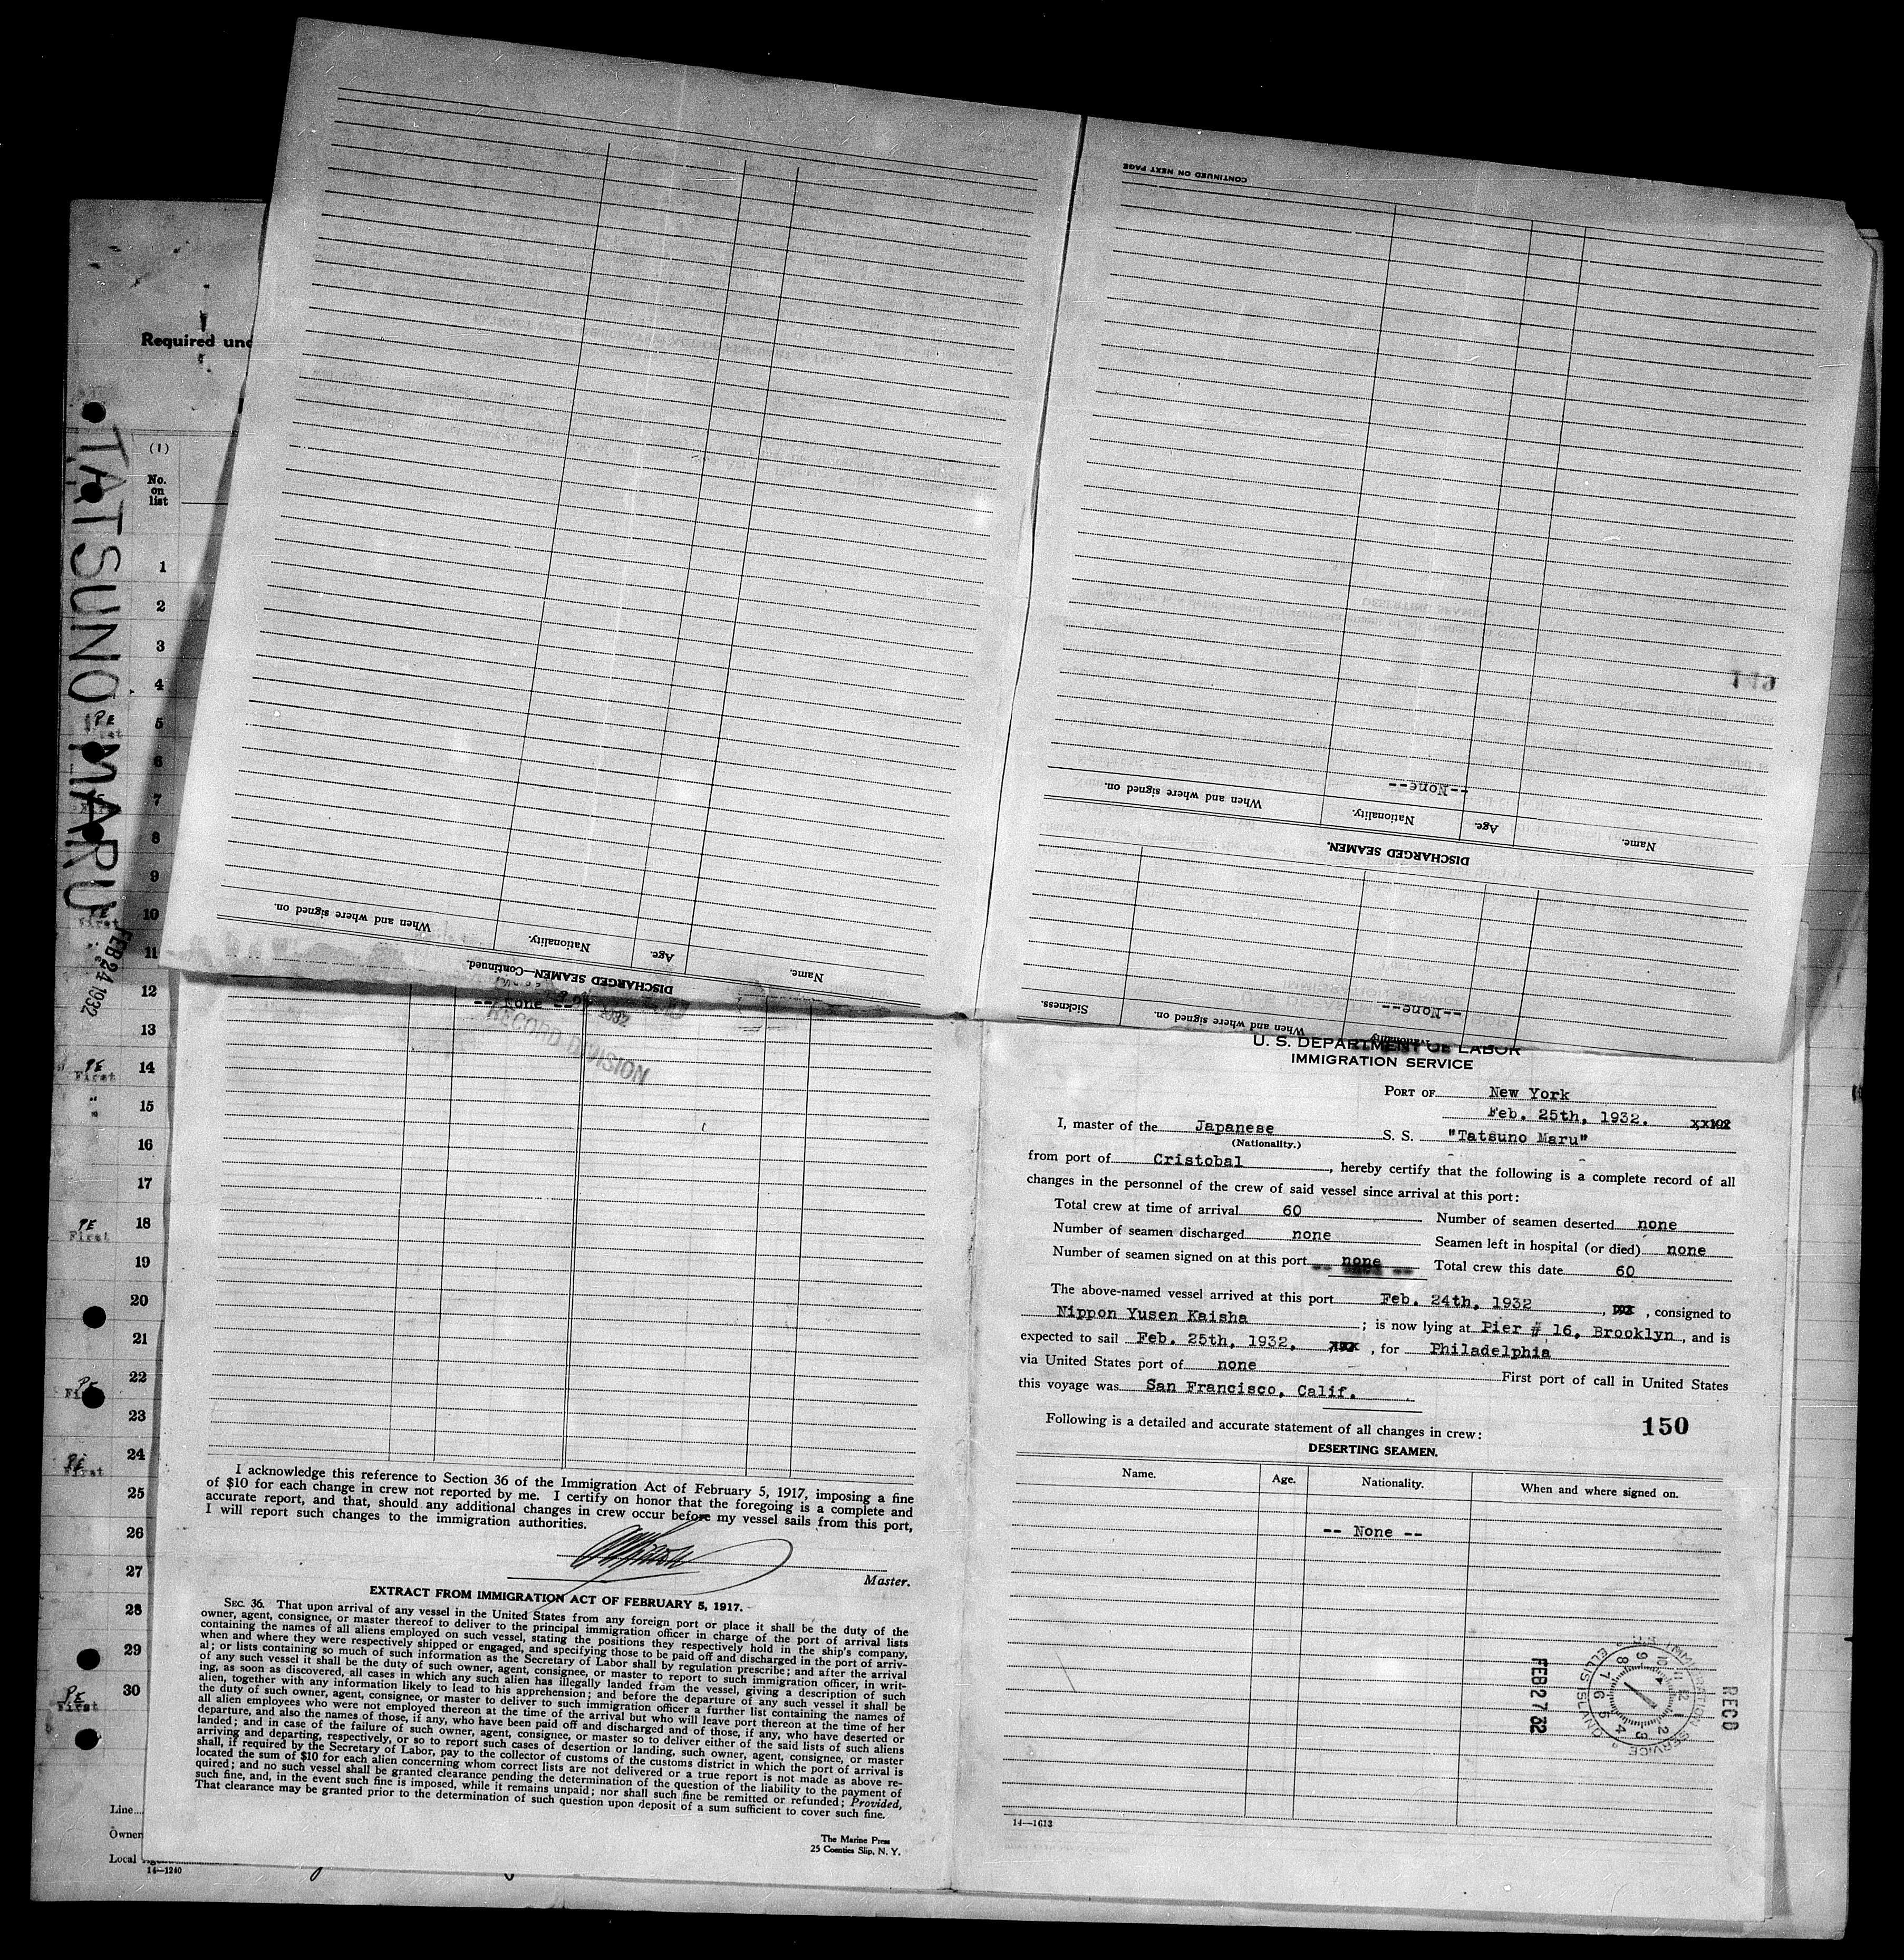 CONTINUED ON NEXT PAGE
--None--
When and where signed on.
Nationality.
Age.
Name.
DISCHARGED SEAMEN.
Sickness.
When and where signed on.
--None--
When and where signed on.
Nationality.
Age.
Name.
DISCHARGED SEAMEN—Continued.
Required und
TATSUNO MARU
FEB 24 1932
(1)
No.
on
list
1
2
3
4
PE
5
6
7
8
9
PE
First
10
11
12
13
PE
First
14
"
15
"
16
17
PE
First
18
19
20
21
PE
22
23
PE
First
24
25
26
27
28
29
PE
First
30
Line
Owner
Local
14—1240
-- None --
RECORD DIVISION
I acknowledge this reference to Section 36 of the Immigration Act of February 5, 1917, imposing a fine
of $10 for each change in crew not reported by me. I certify on honor that the foregoing is a complete and
accurate report, and that, should any additional changes in crew occur before my vessel sails from this port,
I will report such changes to the immigration authorities.
Master.
EXTRACT FROM IMMIGRATION ACT OF FEBRUARY 5, 1917.
SEC. 36. That upon arrival of any vessel in the United States from any foreign port or place it shall be the duty of the
owner, agent, consignee, or master thereof to deliver to the principal immigration officer in charge of the port of arrival lists
containing the names of all aliens employed on such vessel, stating the positions they respectively hold in the ship's company,
when and where they were respectively shipped or engaged, and specifying those to be paid off and discharged in the port of arriv-
al; or lists containing so much of such information as the Secretary of Labor shall by regulation prescribe; and after the arrival
of any such vessel it shall be the duty of such owner, agent, consignee, or master to report to such immigration officer, in writ-
ing, as soon as discovered, all cases in which any such alien has illegally landed from the vessel, giving a description of such
alien, together with any information likely to lead to his apprehension; and before the departure of any such vessel it shall be
the duty of such owner, agent, consignee, or master to deliver to such immigration officer a further list containing the names of
all alien employees who were not employed thereon at the time of the arrival but who will leave port thereon at the time of her
departure, and also the names of those, if any, who have been paid off and discharged and of those, if any, who have deserted or
landed; and in case of the failure of such owner, agent, consignee, or master so to deliver either of the said lists of such aliens
arriving and departing, respectively, or so to report such cases of desertion or landing, such owner, agent, consignee, or master
shall, if required by the Secretary of Labor, pay to the collector of customs of the customs district in which the port of arrival is
located the sum of $10 for each alien concerning whom correct lists are not delivered or a true report is not made as above re-
quired; and no such vessel shall be granted clearance pending the determination of the question of the liability to the payment of
such fine, and, in the event such fine is imposed, while it remains unpaid; nor shall such fine be remitted or refunded; Provided,
That clearance may be granted prior to the determination of such question upon deposit of a sum sufficient to cover such fine.
The Marine Press
25 Coenties Slip, N. Y.
U. S. DEPARTMENT OF LABOR
IMMIGRATION SERVICE
PORT OF New York
Feb. 25th, 1932.
I, master of the Japanese S. S. "Tatsuno Maru"
(Nationality.)
from port of Cristobal, hereby certify that the following is a complete record of all
changes in the personnel of the crew of said vessel since arrival at this port:
Total crew at time of arrival 60 Number of seamen deserted none
Number of seamen discharged none Seamen left in hospital (or died) none
Number of seamen signed on at this port none Total crew this date 60
The above-named vessel arrived at this port Feb. 24th, 1932, consigned to
Nippon Yusen Kaisha; is now lying at Pier # 16, Brooklyn, and is
expected to sail Feb. 25th, 1932, for Philadelphia
via United States port of none First port of call in United States
this voyage was San Francisco, Calif.
Following is a detailed and accurate statement of all changes in crew:
150
DESERTING SEAMEN.
Name. Age. Nationality. When and where signed on.
-- None --
RECD
IMMIGRATION SERVICE
ELLIS ISLAND
FEB 27 32
14—1613